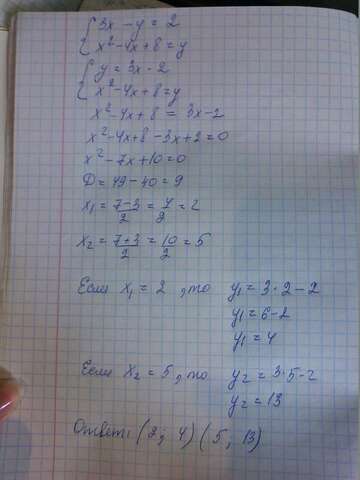 {3x - y = 2
x² - 4x + 8 = y
{y = 3x - 2
x² - 4x + 8 = y
x² - 4x + 8 = 3x - 2
x² - 4x + 8 - 3x + 2 = 0
x² - 7x + 10 = 0
D = 49 - 40 = 9
x₁ = (7-3)/2 = 4/2 = 2
x₂ = (7+3)/2 = 10/2 = 5
Если x₁ = 2, то y₁ = 3·2 - 2
y₁ = 6 - 2
y₁ = 4
Если x₂ = 5, то y₂ = 3·5 - 2
y₂ = 13
Ответ: (2; 4) (5; 13)